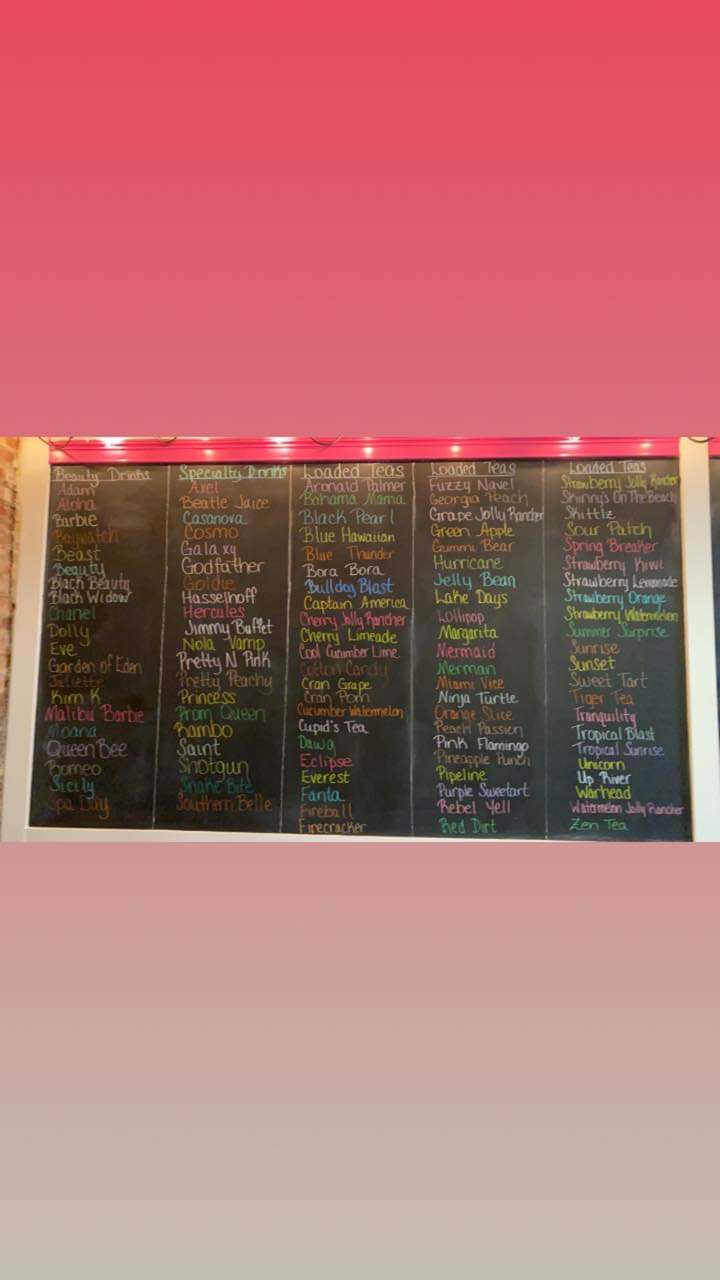 Beauty Drinks
Adam
Aloha
Barbie
Baywatch
Beast
Beauty
Black Beauty
Black Widow
Chanel
Dolly
Eve
Garden of Eden
Juliette
Kim K
Malibu Barbie
Moana
Queen Bee
Romeo
Sicily
Spa Day
Specialty Drinks
Axel
Beatle Juice
Casanova
Cosmo
Galaxy
Godfather
Goldie
Hasselhoff
Hercules
Jimmy Buffet
Nola Vamp
Pretty N Pink
Pretty Peachy
Princess
Prom Queen
Rambo
Saint
Shotgun
Snake Bite
Southern Belle
Loaded Teas
Aronald Palmer
Bahama Mama
Black Pearl
Blue Hawaiian
Blue Thunder
Bora Bora
Bulldog Blast
Captain America
Cherry Jolly Rancher
Cherry Limeade
Cool Cucumber Lime
Cotton Candy
Cran Grape
Cran Pom
Cucumber Watermelon
Cupid's Tea
Dawg
Eclipse
Everest
Fanta
Fireball
Firecracker
Loaded Teas
Fuzzy Navel
Georgia Peach
Grape Jolly Rancher
Green Apple
Gummi Bear
Hurricane
Jelly Bean
Lake Days
Lollipop
Margarita
Mermaid
Merman
Miami Vice
Ninja Turtle
Orange Slice
Peach Passion
Pink Flamingo
Pineapple Punch
Pipeline
Purple Sweetart
Rebel Yell
Red Dirt
Loaded Teas
Strawberry Jolly Rancher
Skinny's On The Beach
Skittlz
Sour Patch
Spring Breaker
Strawberry Kiwi
Strawberry Lemonade
Strawberry Orange
Strawberry Watermelon
Summer Surprise
Sunrise
Sunset
Sweet Tart
Tiger Tea
Tranquility
Tropical Blast
Tropical Sunrise
Unicorn
Up River
Warhead
Watermelon Jolly Rancher
Zen Tea